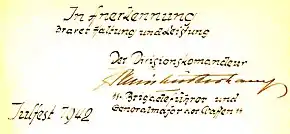 In Anerkennung
braver Haltung und Leistung
Der Divisionskommandeur
Brigadeführer und
Generalmajor der Waffen
Julfest 1942